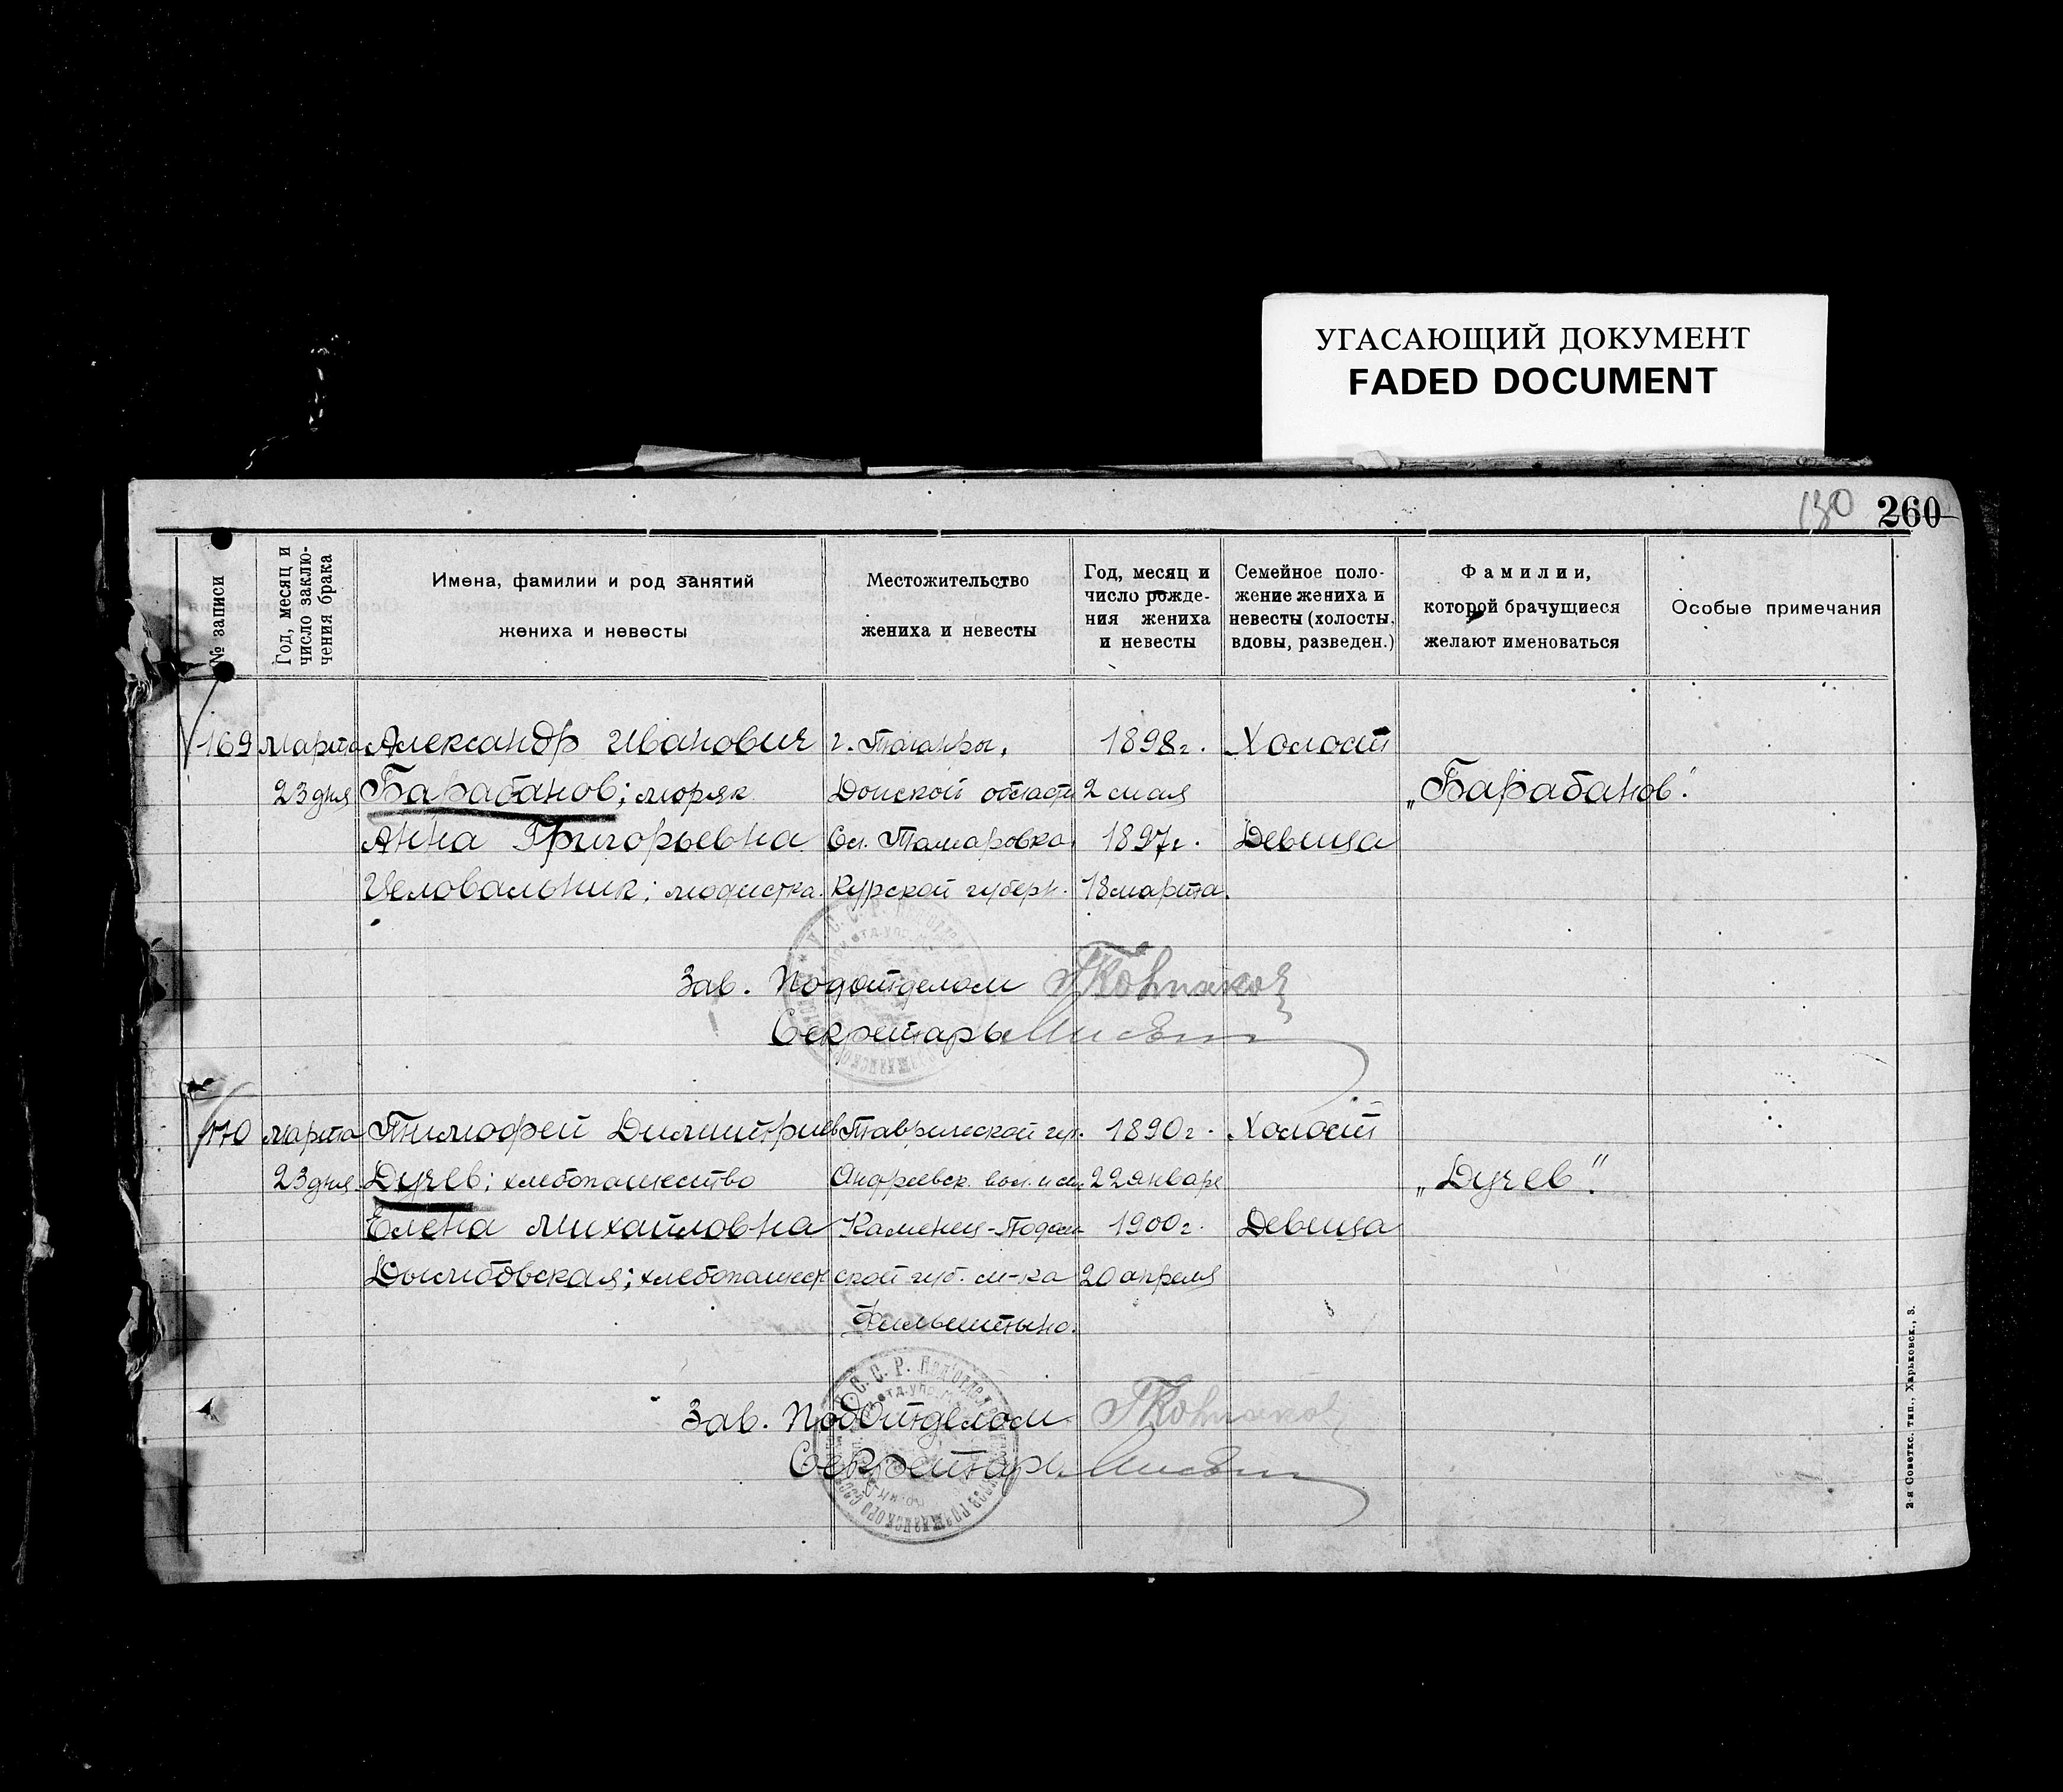 УГАСАЮЩИЙ ДОКУМЕНТ
FADED DOCUMENT
130 260
№ записи
Год, месяц и
число заклю-
чения брака
Имена, фамилии и род занятий
жениха и невесты
Местожительство
жениха и невесты
Год, месяц и
число рожде-
ния жениха
и невесты
Семейное поло-
жение жениха и
невесты (холосты,
вдовы, разведен.)
Фамилии,
которой брачущиеся
желают именоваться
Особые примечания
169 марта Александр Иванович г. 1898г. Холост
23 дня Барабанов; моряк Донской области 2 мая „Барабанов".
Анна Григорьевна Сл. Томаровка, 1897г. Девица
Целовальник; модистка. Курской губерн. 18 марта.
Зав. Подотделом
Секретарь
170 марта Тимофей Димитриев Таврической гуг. 1890г. Холост
23 дня Дучев; хлебопашество Андреевск. вол. и 22 января „Дучев".
Елена Михайловна Каменец-Подол 1900г. Девица
Дымбовская; хлебопашест ской губ. м-ка 20 апреля
Фильштыно.
Зав. Подотделом
Секретарь
2-я Советск. тип., Харьковск., 3.